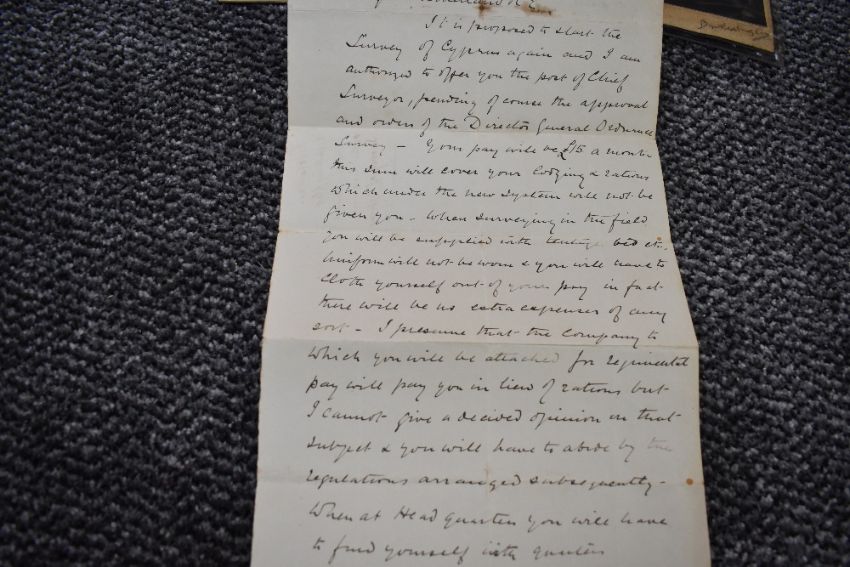 It is proposed to start the
Survey of Cyprus again and I am
authorized to offer you the post of Chief
Surveyor, pending of course the approval
and orders of the Director General Ordnance
Survey - Your pay will be £15 a month
this sum will cover your lodging & rations
which under the new system will not be
given you - When surveying in the field
you will be supplied with tentage, bed etc.
Uniform will not be worn & you will have to
Cloth yourself out of your pay in fact
there will be no extra expenses of any
sort - I presume that the Company to
which you will be attached for regimental
pay will pay you in lieu of rations but
I cannot give a decided opinion on that
subject & you will have to abide by the
regulations arranged subsequently -
When at Head Quarters you will have
to find yourself with quarters